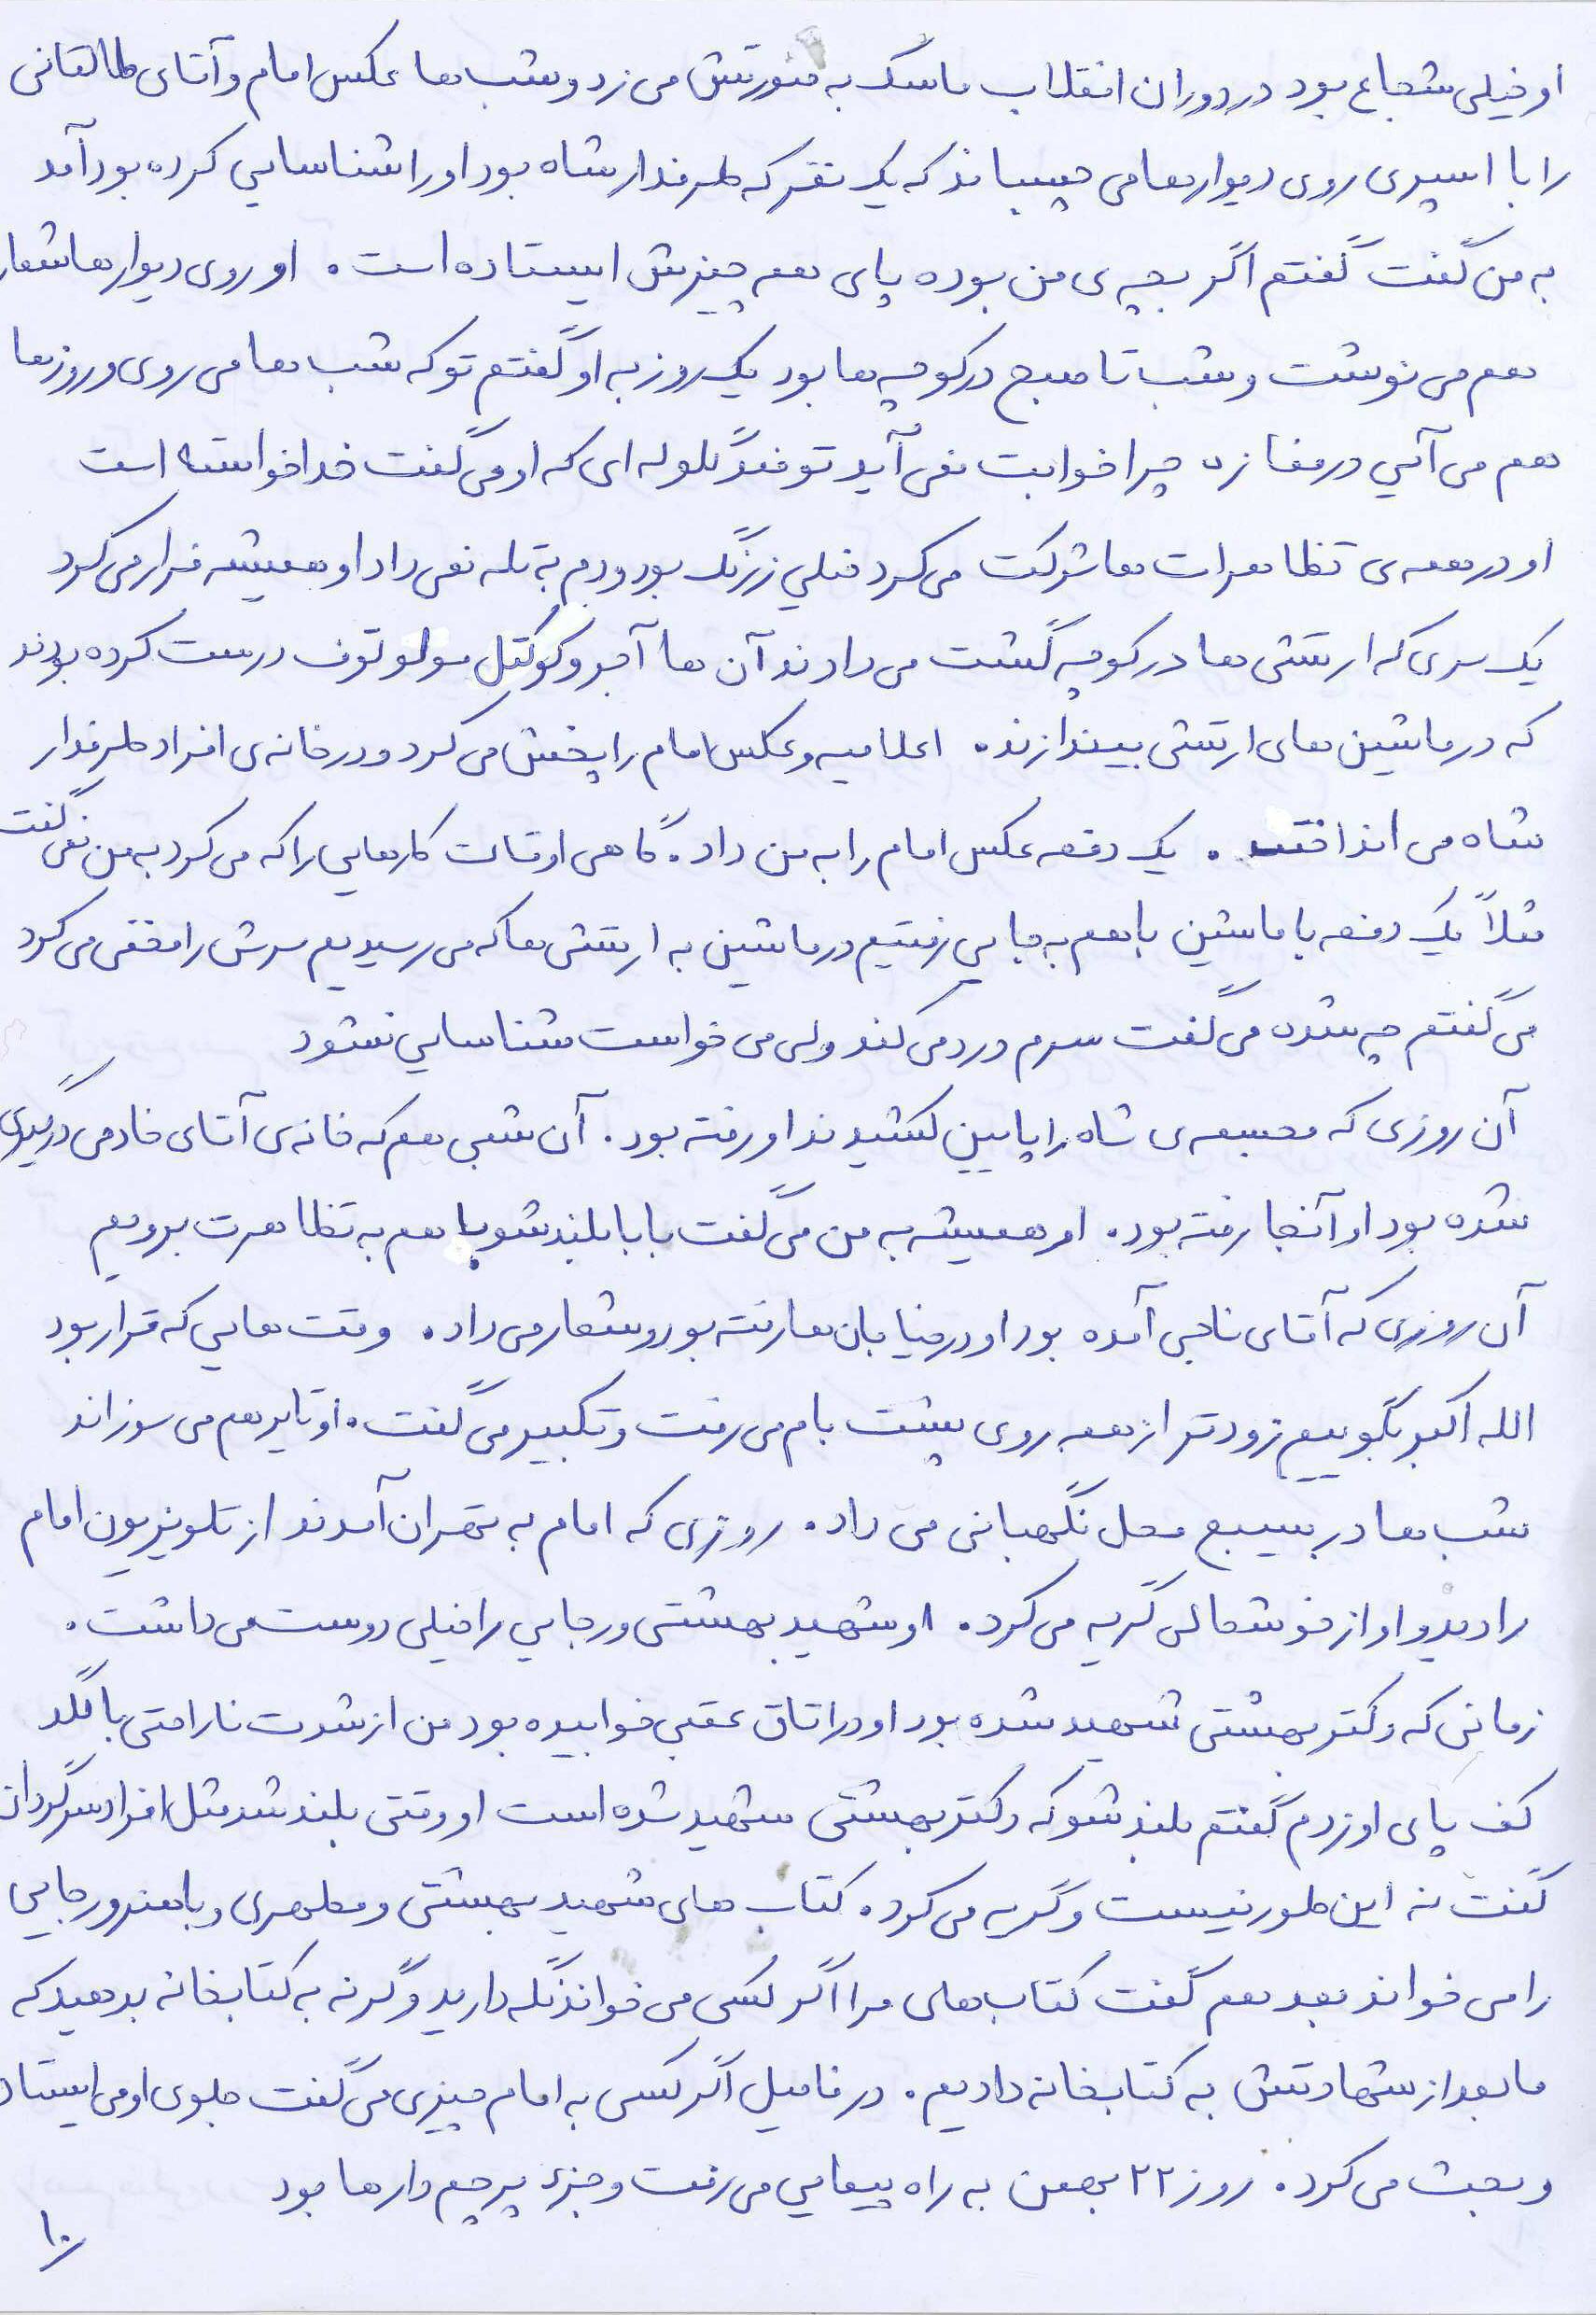 او خیلی شجاع بود در دوران انقلاب ماسک به صورتش می زد و شب ها عکس امام و آقای طالقانی
را با اسپری روی دیوار ها می چسباند که یک نفر که طرفدار شاه بود او را شناسایی کرده بود آمد
به من گفت گفتم اگر بچه ی من بوده پای همه چیزش ایستاده است . او روی دیوار ها شعار
هم می نوشت و شب تا صبح در کوچه ها بود یک روز به او گفتم تو که شب ها می روی و روزها
هم می آئی در مغازه چرا خوابت نمی آید تو ضد گلوله ای که او می گفت خدا خواسته است
او در همه ی تظاهرات ها شرکت می کرد خیلی زرنگ بود و دم به تله نمی داد او همیشه فرار می کرد
یک سری که ارتشی ها در کوچه گشت می دادند آن ها آجر و کوکتل مولوتوف درست کرده بودند
که در ماشین های ارتشی بیندازند . اعلامیه و عکس امام را پخش می کرد و در خانه ی افراد طرفدار
شاه می انداخت . یک دفعه عکس امام را به من داد . گاهی اوقات کارهایی را که می کرد به من نمی گفت
مثلاً یک دفعه با ماشین با هم به جایی رفتیم در ماشین به ارتشی ها که می رسیدیم سرش را مخفی می کرد
می گفتم چه شده می گفت سرم درد می کند ولی می خواست شناسایی نشود
آن روزی که مجسمه ی شاه را پایین کشیدند او رفته بود . آن شبی هم که خانه ی آقای خادمی درگیری
شده بود او آنجا رفته بود . او همیشه به من می گفت بابا بلند شو با هم به تظاهرت برویم
آن روزی که آقای ناجی آمده بود او در خیابان ها رفته بود و شعار می داد . وقت هایی که قرار بود
الله اکبر بگوییم زودتر از همه روی پشت بام می رفت و تکبیر می گفت . او تایر هم می سوزاند
شب ها در بسیج محل نگهبانی می داد . روزی که امام به تهران آمدند از تلویزیون امام
را دید و او از خوشحالی گریه می کرد . او شهید بهشتی و رجایی را خیلی دوست می داشت .
زمانی که دکتر بهشتی شهید شده بود او در اتاق عقبی خوابیده بود من از شدت ناراحتی با لگد
کف پای او زدم گفتم بلند شو که دکتر بهشتی شهید شده است او وقتی بلند شد مثل افراد سرگردان
گفت نه این طور نیست و گریه می کرد . کتاب های شهید بهشتی و مطهری و باهنر و رجایی
را می خواند بعد هم گفت کتاب های مرا اگر کسی می خواند نگه دارید و گرنه به کتابخانه بدهید که
ما بعد از شهادتش به کتابخانه دادیم . در فامیل اگر کسی به امام چیزی می گفت جلوی او می ایستاد
و بحث می کرد . روز ۲۲ بهمن به راه پیمایی می رفت و جزء پرچم دارها بود
۱۰